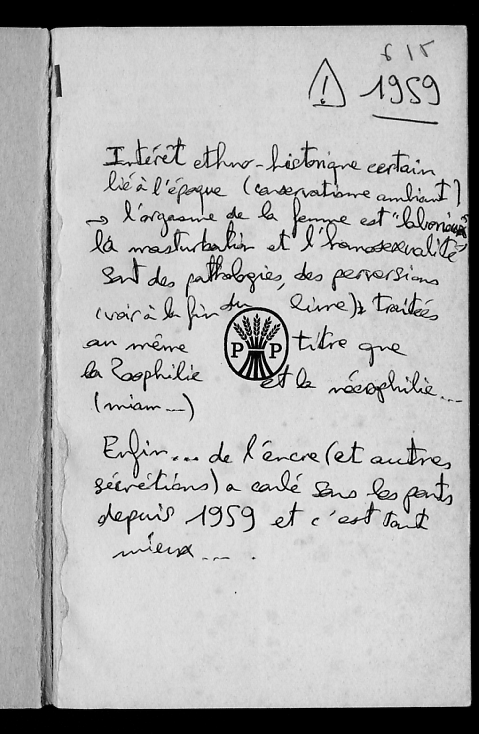 615
⚠ 1959
Intérêt ethno-historique certain
lié à l'époque (conservatisme ambiant)
→ l'orgasme de la femme est "laborieux"
la masturbation et l'homosexualité
sont des pathologies, des perversions
(voir à la fin du livre) traitées
au même titre que
P P
la zoophilie et la nécrophilie...
(miam...)
Enfin... de l'encre (et autres
sécrétions) a coulé sous les ponts
depuis 1959 et c'est tant
mieux... .